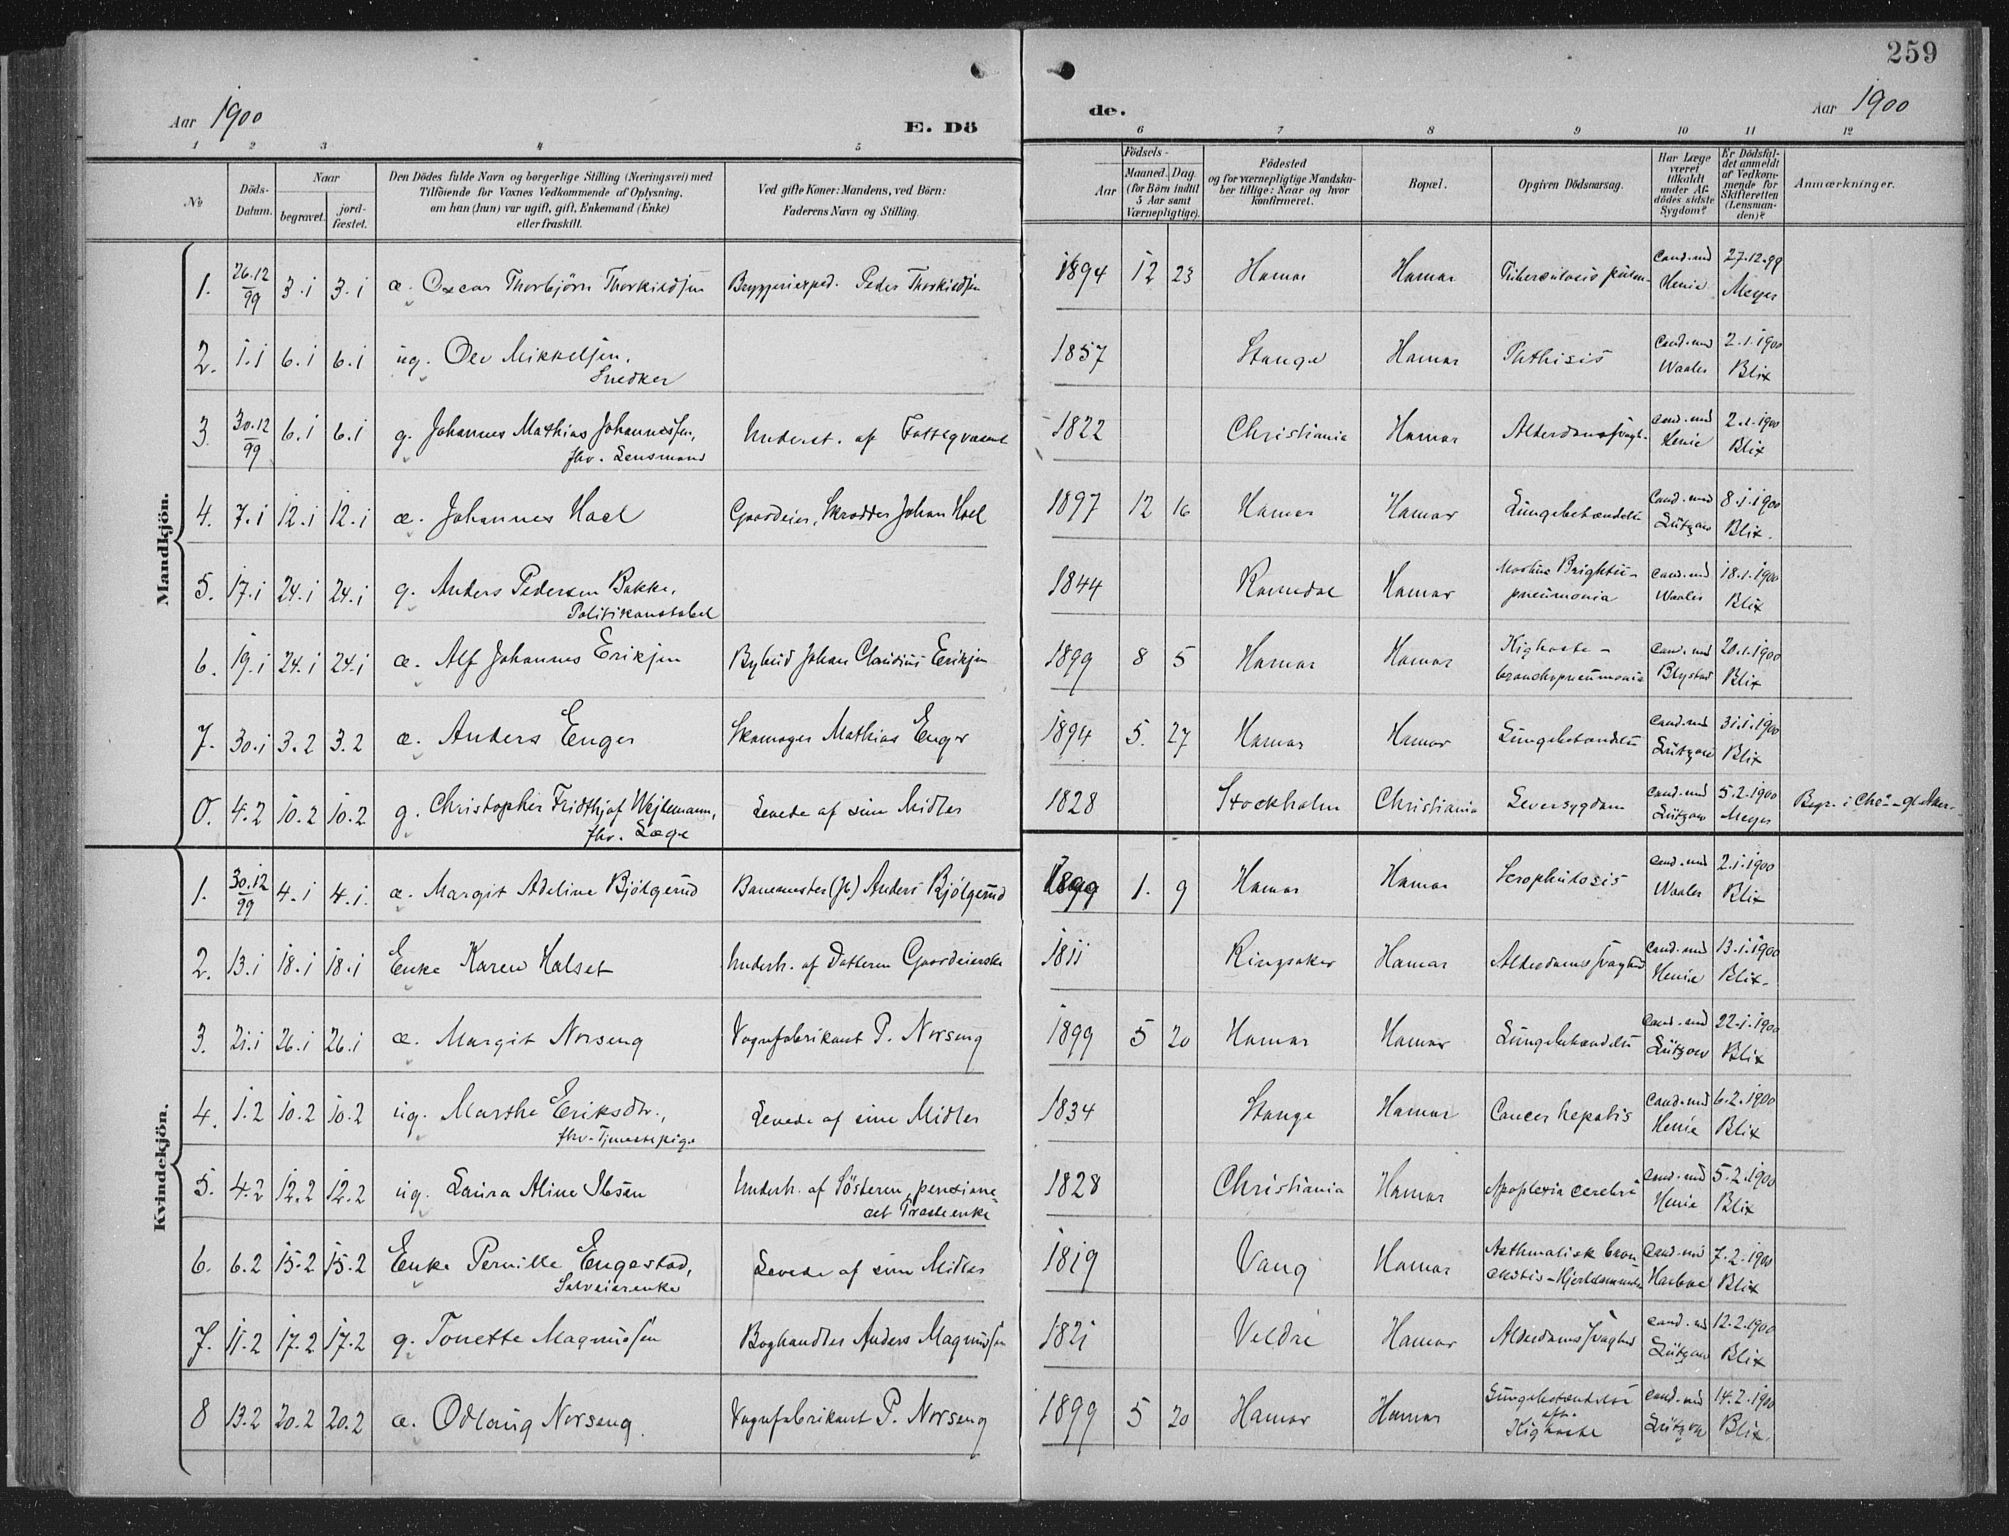 259
Aar 1900
E. Dö
de.
Aar 1900
1 2 3 4 5 6 7 8 9 10 11 12
No
Döds-Datum.
Naar
begravet.
jord-fæstet.
Den Dödes fulde Navn og borgerlige Stilling (Næringsvei) med
Tilföiende for Voxnes Vedkommende af Oplysning,
om han (hun) var ugift, gift, Enkemand (Enke)
eller fraskilt.
Ved gifte Koner: Mandens, ved Börn:
Faderens Navn og Stilling.
Födsels-
Aar
Maaned. Dag
(for Börn indtil
5 Aar samt
Værnepligtige).
Födested
og for værnepligtige Mandska-
ber tillige: Naar og hvor
konfirmeret.
Bopæl.
Opgiven Dödsaarsag.
Har Læge
været
tilkaldt
under Af-
dödes sidste
Sygdom?
Er Dödsfal-
det anmeldt
af Vedkom-
mende for
Skifteretten
(Lensman-
den)?
Anmærkninger.
Mandkjön.
1. 26.12/99 3.1 3.1 æ. Oscar Thorbjörn Thorkildsen Bryggeriexped. Peder Thorkildsen 1894 12 23 Hamar Hamar Tuberculosis pulm. cand. med Henie 27.12.99 Meyer
2. 1.1 6.1 6.1 ug. Ole Mikkelsen, Snedker 1857 Stange Hamar Pathisis cand. med Waaler 2.1.1900 Blix
3. 30.12/99 6.1 6.1 g. Johannes Mathias Johannessen, fhv. Lensmand Underst. af Fattigvæsenet 1822 Christiania Hamar Alderdomssvagh. cand. med Henie 2.1.1900 Blix
4. 7.1 12.1 12.1 æ. Johannes Hoel Gaardeier, Skrædder Johan Hoel 1897 12 16 Hamar Hamar Lungebetændelse cand. med Lützow 8.1.1900 Blix.
5. 17.1 24.1 24.1 g. Anders Pedersen Bakke, Politikonstabel 1844 Romsdal Hamar Morbus Brightii - pneumonia cand. med Waaler 18.1.1900 Blix
6. 19.1 24.1 24.1 æ. Alf Johannes Eriksen Bybud Johan Claudius Eriksen 1899 8 5 Hamar Hamar Kighoste - bronchopneumonia cand. med Blystad 20.1.1900 Blix
7. 30.1 3.2 3.2 æ. Anders Enger Skomager Mathias Enger 1894 5. 27 Hamar Hamar Lungebetændelse cand. med Lützow 31.1.1900 Blix
0. 4.2 10.2 10.2 g. Christopher Fridthjof Wejlemann, fhv. Læge Levede af sine Midler 1828 Stockholm Christiania Leversygdom cand. med Lützow 5.2.1900 Meyer Begr. i Chr.a - gl. Aker-
Kvindekjön.
1. 30.12/99 4.1 4.1. æ. Margit Adeline Bjölgerud Banemester (Jb) Anders Bjölgerud 1899 1. 9 Hamar Hamar Scrophulosis cand. med Waaler 2.1.1900 Blix
2. 13.1 18.1 18.1 Enke Karen Halset Underh. af Datteren Gaardeierske 1811 Ringsaker Hamar Alderdomssvaghed cand. med Henie 13.1.1900 Blix.
3. 21.1 26.1 26.1 æ. Margit Norseng Vognfabrikant P. Norseng 1899 5 20 Hamar Hamar Lungebetændelse cand. med Lützow 22.1.1900 Blix
4. 1.2 10.2 10.2 ug. Marthe Eriksdtr., fhv. Tjenestepige Levede af sine Midler 1834 Stange Hamar Cancer hepatis cand. med Henie 6.2.1900 Blix
5. 4.2 12.2 12.2 ug. Laura Aline Ibsen Underh. af Sösteren, pensione- 1828 Christiania Hamar Apoplexia cerebri cand. med Henie 5.2.1900 Blix
6. 6.2 15.2 15.2 Enke Pernille Engestad, Selveierenke Levede af sine Midler 1819 Vang Hamar Asthmatisk bron- cand. med 7.2.1900 Blix
7. 11.2 17.2 17.2 g. Tonette Magnussen Boghandler Anders Magnussen 1821 Veldre Hamar Alderdomssvaghed cand. med Lützow 12.2.1900 Blix
8 13.2 20.2 20.2 æ. Odlaug Norseng. Vognfabrikant P. Norseng 1899 5 20 Hamar Hamar Lungebetændelse eft. Kighoste cand. med Lützow 14.2.1900 Blix.